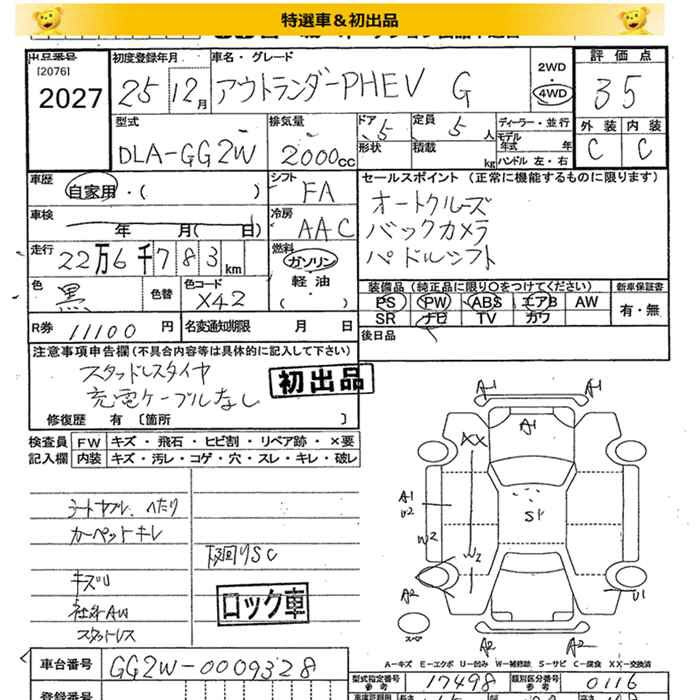 特選車＆初出品
出品番号
[2076]
2027
初度登録年月
25 12月
車名・グレード
アウトランダーPHEV G
2WD
・
4WD
評価点
35
外装 内装
C C
型式
DLA-GG2W
排気量
2000cc
ドア 5
形状
定員 5人
積載 kg
ディーラー・並行
モデル年式 年
ハンドル 左・右
車歴
自家用・( )
シフト
FA
車検
年 月( 日)
冷房
AAC
走行
22万6千783km
燃料
ガソリン
軽油
( )
色
黒
色替
色コード
X42
R券 11100円
名変通知期限 月 日
セールスポイント (正常に機能するものに限ります)
オートクルーズ
バックカメラ
パドルシフト
装備品 (純正品に限り○をつけてください)
新車保証書
PS PW ABS エアB AW
SR ナビ TV カワ
有・無
後日品
注意事項申告欄 (不具合内容等は具体的に記入して下さい)
スタッドレスタイヤ
充電ケーブルなし
初出品
修復歴 有 〔箇所 〕
検査員 FW キズ・飛石・ヒビ割・リペア跡・×要
記入欄 内装 キズ・汚レ・コゲ・穴・スレ・キレ・破レ
シートヤブレ、ヘたり
カーペットキレ
下回りSC
キズU
社外AW
スタットレス
ロック車
A-1 A-1
A-1
XX
A1
U2
W2
W2
S1
A2
U1
スペア
A2 A2
A-キズ E-エクボ U-凹み W-補修跡 S-サビ C-腐食 XX-交換済
車台番号 GG2W-0009328
型式指定番号
参考
17498
類別区分番号
参考
0116
登録番号